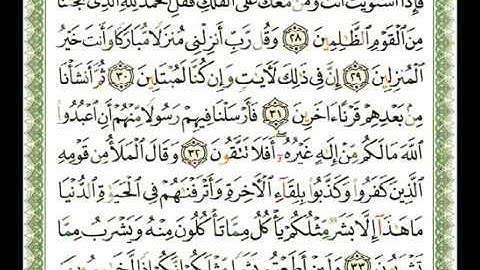 فَإِذَا ٱسْتَوَيْتَ أَنتَ وَمَن مَّعَكَ عَلَى ٱلْفُلْكِ فَقُلِ ٱلْحَمْدُ لِلَّهِ ٱلَّذِى نَجَّىٰنَا
مِنَ ٱلْقَوْمِ ٱلظَّـٰلِمِينَ ٢٨ وَقُل رَّبِّ أَنزِلْنِى مُنزَلًا مُّبَارَكًا وَأَنتَ خَيْرُ
ٱلْمُنزِلِينَ ٢٩ إِنَّ فِى ذَٰلِكَ لَـَٔايَـٰتٍ وَإِن كُنَّا لَمُبْتَلِينَ ٣٠ ثُمَّ أَنشَأْنَا
مِنۢ بَعْدِهِمْ قَرْنًا ءَاخَرِينَ ٣١ فَأَرْسَلْنَا فِيهِمْ رَسُولًا مِّنْهُمْ أَنِ ٱعْبُدُوا۟
ٱللَّهَ مَا لَكُم مِّنْ إِلَـٰهٍ غَيْرُهُۥٓ أَفَلَا تَتَّقُونَ ٣٢ وَقَالَ ٱلْمَلَأُ مِن قَوْمِهِ
ٱلَّذِينَ كَفَرُوا۟ وَكَذَّبُوا۟ بِلِقَآءِ ٱلْـَٔاخِرَةِ وَأَتْرَفْنَـٰهُمْ فِى ٱلْحَيَوٰةِ ٱلدُّنْيَا
مَا هَـٰذَآ إِلَّا بَشَرٌ مِّثْلُكُمْ يَأْكُلُ مِمَّا تَأْكُلُونَ مِنْهُ وَيَشْرَبُ مِمَّا
تَشْرَبُونَ ٣٣ وَلَئِنْ أَطَعْتُم بَشَرًا مِّثْلَكُمْ إِنَّكُمْ إِذًا لَّخَـٰسِرُونَ